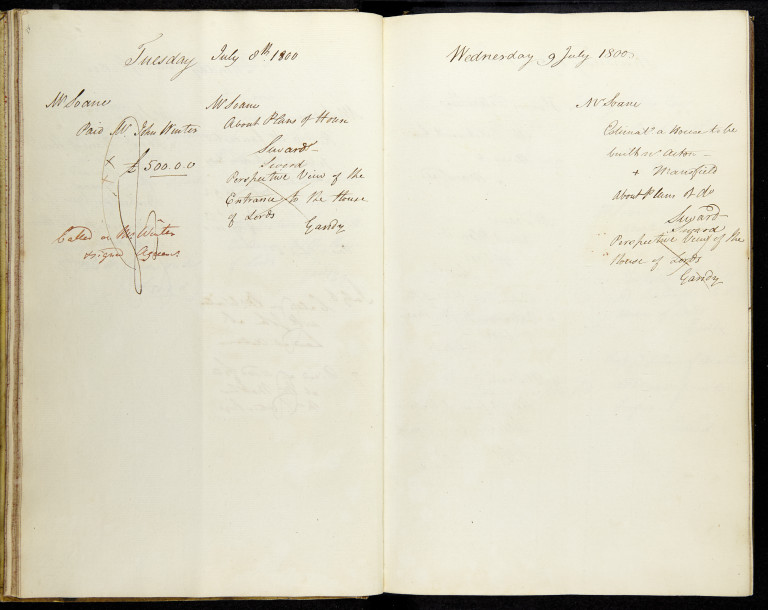 Tuesday July 8th 1800
Mr Soane
Paid Mr John Winter
£ 500.0.0
Called on Mr Winter
& signed Agreemt
Mr Soane
About Plans of House
Seward
Seward
Perspective View of the
Entrance to the House
of Lords
Gandy
Wednesday 9 July 1800
Mr Soane
Estimatg a House to be
built at Acton
+ Mansfield
About Plans of do
Seward
Seward
Perspective View of the
House of Lords
Gandy